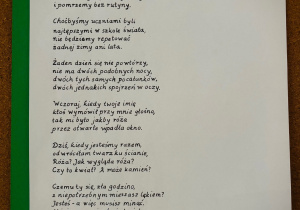 i pomrzemy bez rutyny.
Choćbyśmy uczniami byli
najtępszymi w szkole świata,
nie będziemy repetować
żadnej zimy ani lata.
Żaden dzień się nie powtórzy,
nie ma dwóch podobnych nocy,
dwóch tych samych pocałunków,
dwóch jednakich spojrzeń w oczy.
Wczoraj, kiedy twoje imię
ktoś wymówił przy mnie głośno,
tak mi było jakby róża
przez otwarte wpadła okno.
Dziś, kiedy jesteśmy razem,
odwróciłam twarz ku ścianie,
Róża? Jak wygląda róża?
Czy to kwiat? A może kamień?
Czemu ty się, zła godzino,
z niepotrzebnym mieszasz lękiem?
Jesteś - a więc musisz minąć.